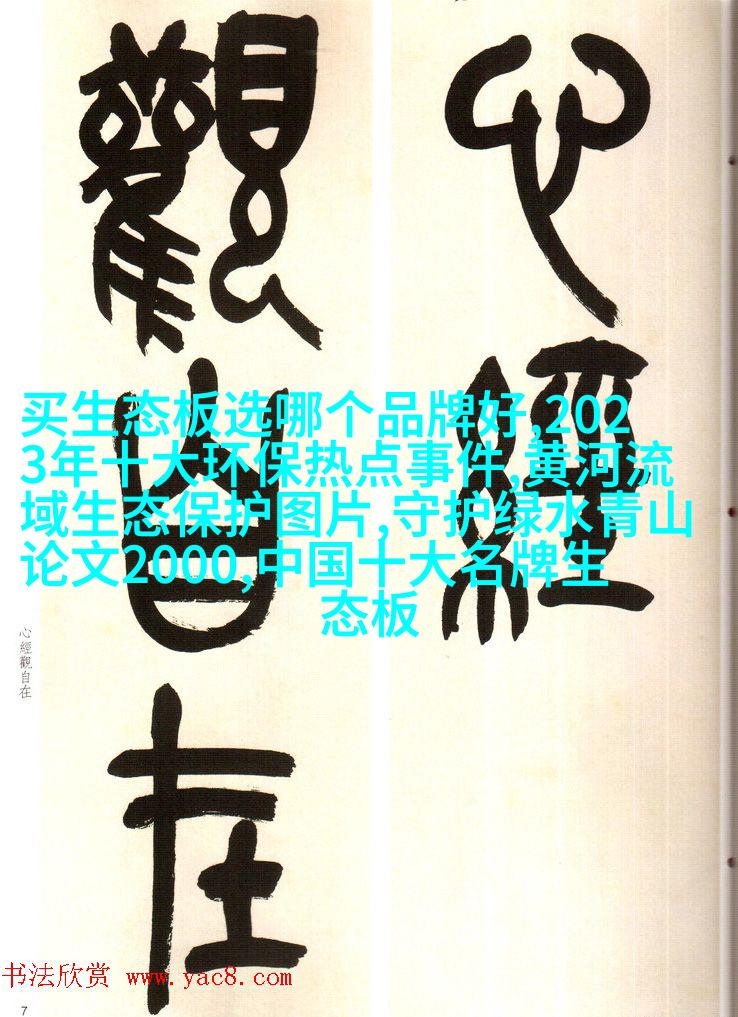 心經
觀自在
买生态板选哪个品牌好,202
3年十大环保热点事件,黄河流
域生态保护图片,守护绿水青山
论文2000,中国十大名牌生
态板
心經觀自在
书法欣赏 www.yac8.com
7